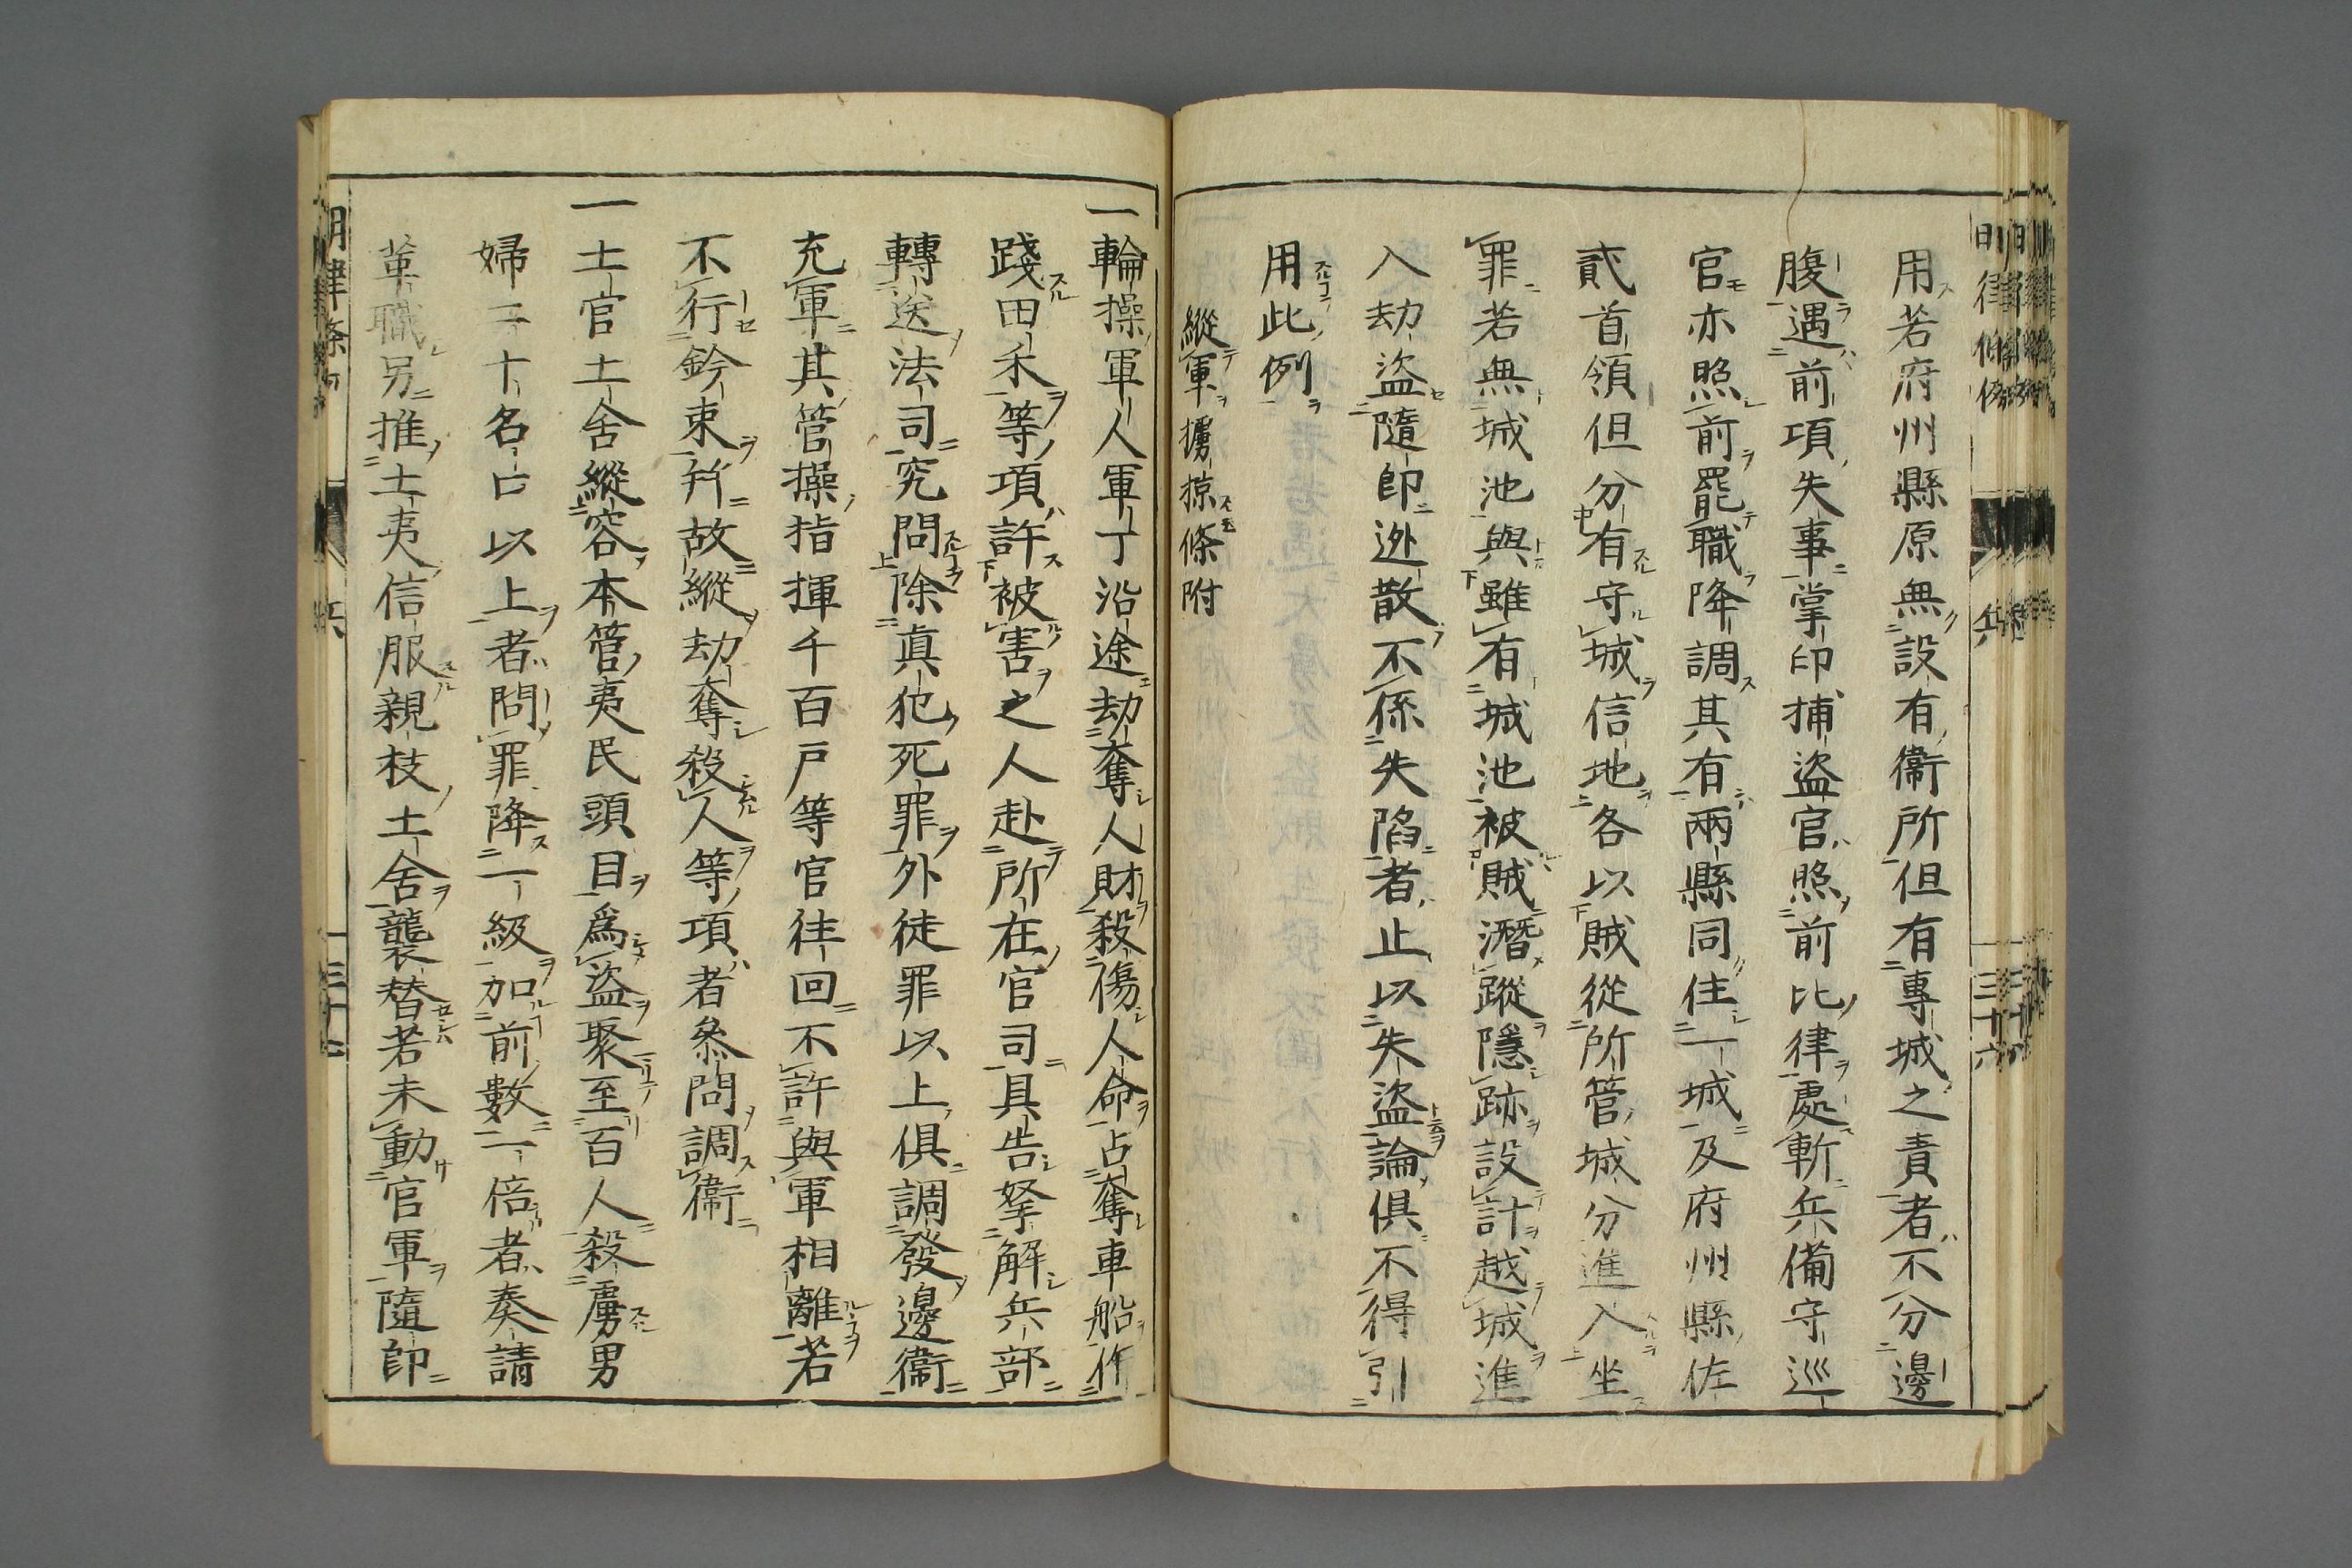 用若府州縣原無設有衞所但有專城之責者不分邊
腹遇前項失事掌印捕盗官照前比律處斬兵備守巡
官亦照前罷職降調其有兩縣同住一城及府州縣佐
貳首領但分有守城信地各以賊從所管城分進入坐
罪若無城池與雖有城池被賊潛蹤隱跡設計越城進
入劫盗隨即逃散不係失陷者止以失盗論俱不得引
用此例
縱軍擄掠條附
一輪操軍人軍丁沿途劫奪人財殺傷人命占奪車船作
踐田禾等項許被害之人赴所在官司具告拏解兵部
轉送法司究問除真犯死罪外徒罪以上俱調發邊衞
充軍其管操指揮千百戸等官往回不許與軍相離若
不行鈐束幷故縱劫奪殺人等項者叅問調衞
一土官土舍縱容本管夷民頭目爲盗聚至百人殺虜男
婦二十名口以上者問罪降一級加前數一倍者奏請
革職另推土夷信服親枝土舍襲替若未動官軍隨即
明律條例 兵 三十六